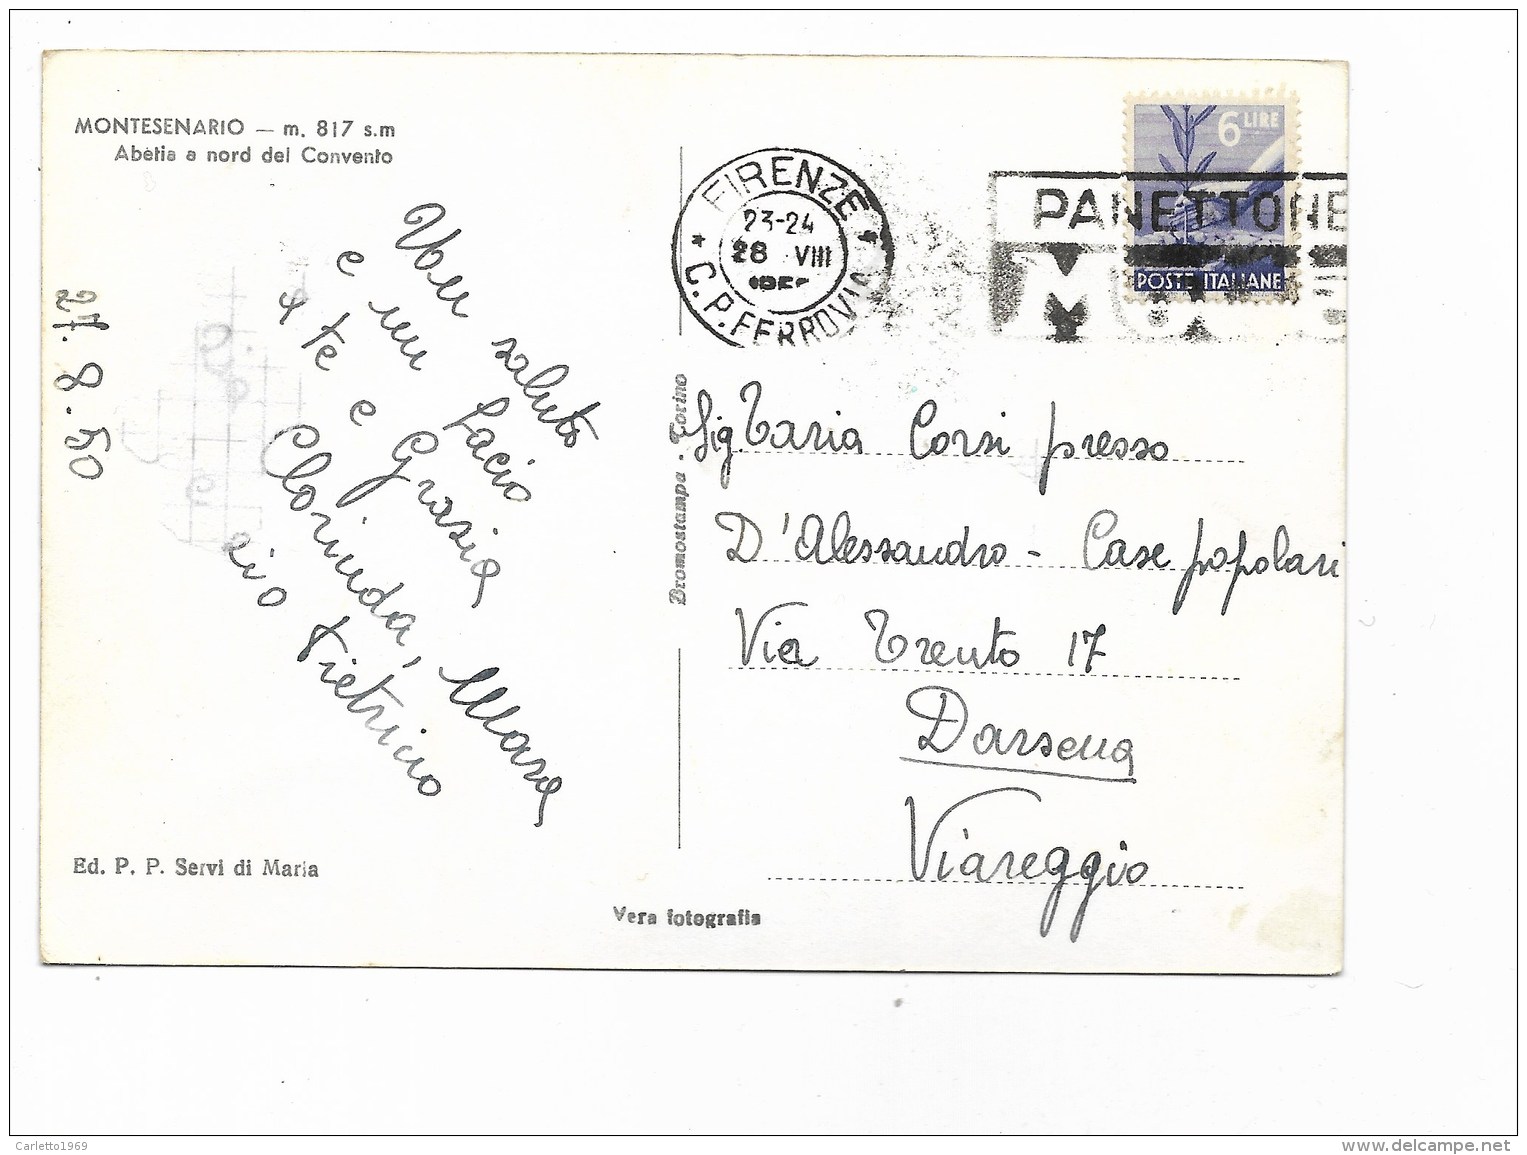 MONTESENARIO — m. 817 s.m
Abetia a nord del Convento
27.8.50
Un saluto
e un bacio
a te e Grazia
Clorinda, Mara
sivo Pietrino
Ed. P. P. Servi di Maria
Vera fotografia
Bromostampa - Torino
FIRENZE
23-24
28 VIII
C.P. FERROVIA
PANETTONE
6 LIRE
POSTE ITALIANE
Sig. Taria Corsi presso
D'Alessandro - Case popolari
Via Trento 17
Darsena
Viareggio
Carletto1969
www.delcampe.net